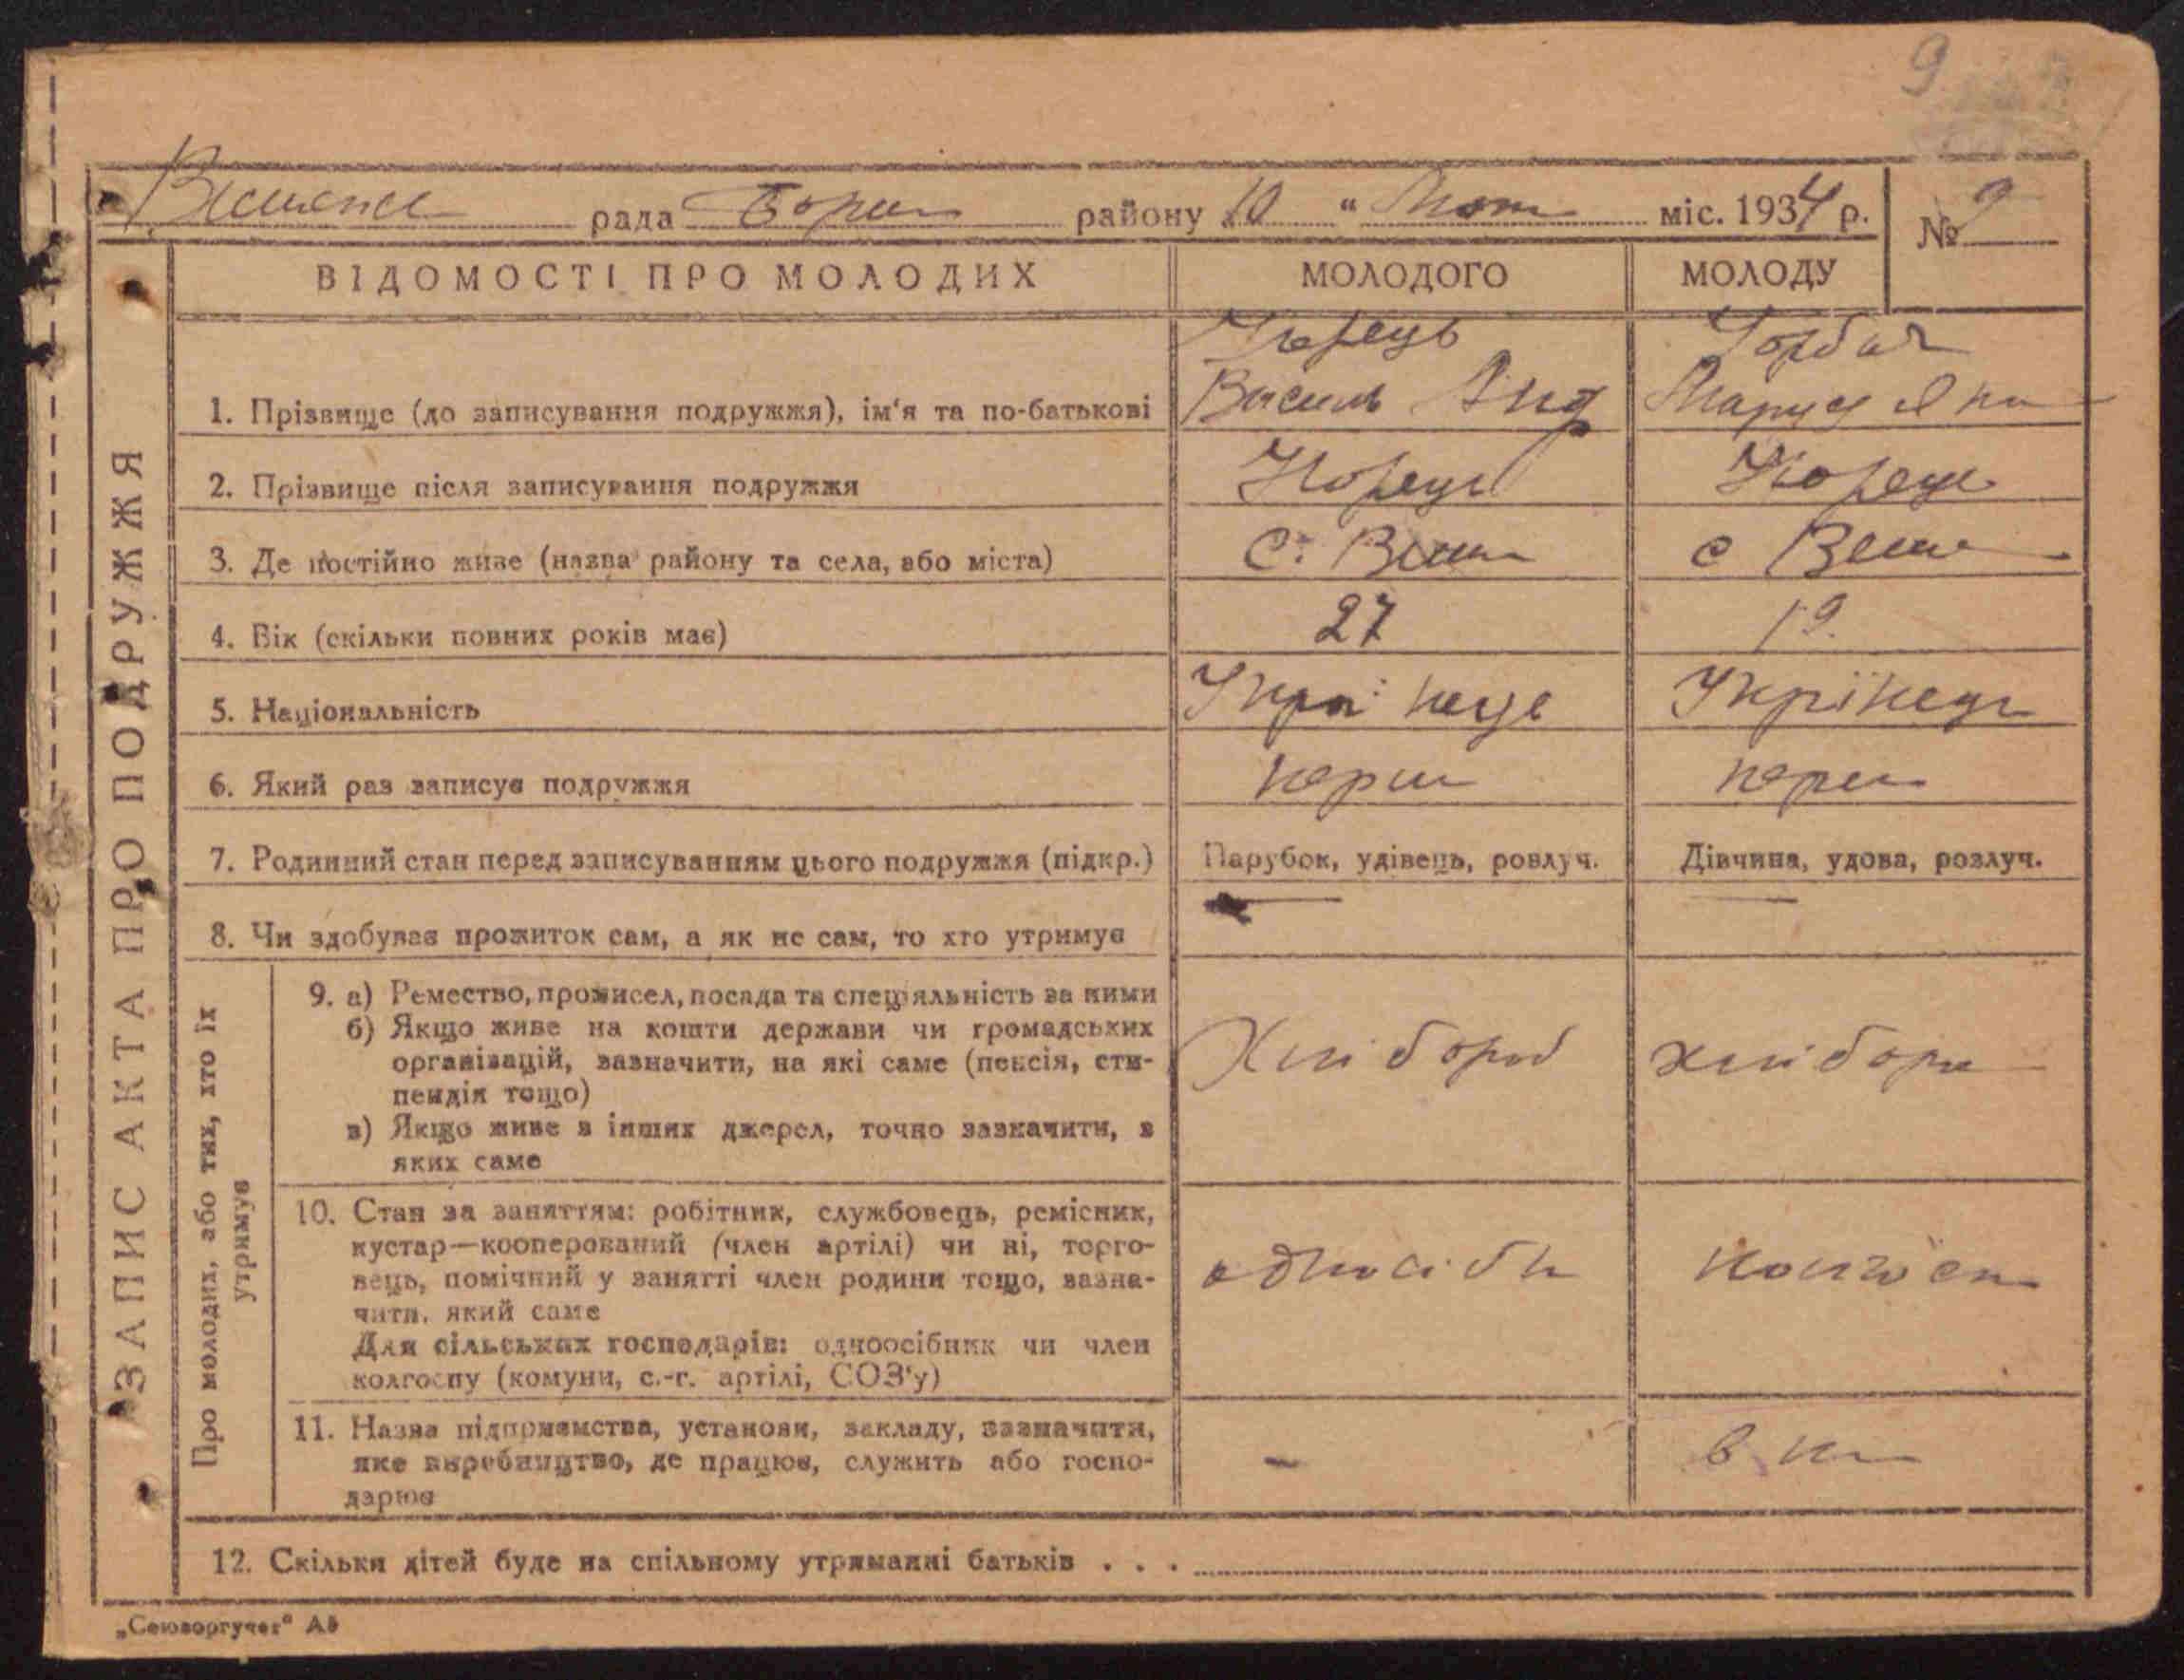 9
рада Борис району 10 " Лют міс. 1934 р. № 9
ВІДОМОСТІ ПРО МОЛОДИХ МОЛОДОГО МОЛОДУ
Горбач
1. Прізвище (до записування подружжя), ім'я та по-батькові Василь Анд Маруся
2. Прізвище після записування подружжя
3. Де постійно живе (назва району та села, або міста) с. с
4. Вік (скільки повних років має) 27 19.
5. Національність Українець Укрїнець
6. Який раз записує подружжя перш перш
7. Родинний стан перед записуванням цього подружжя (підкр.) Парубок, удівець, розлуч. Дівчина, удова, розлуч.
8. Чи здобував прожиток сам, а як не сам, то хто утримує
9. а) Ремество, промисел, посада та спеціяльність за ними
б) Якщо живе на кошти держави чи громадських
організацій, зазначити, на які саме (пенсія, сти-
пендія тощо)
Хлібороб хлібороб
в) Якщо живе з інших джерел, точно зазначити, з
яких саме
10. Стан за заняттям: робітник, службовець, ремісник,
кустар—кооперований (член артілі) чи ні, торго-
вець, помічний у занятті член родини тощо, зазна-
чити, який саме
Для сільських господарів: одноосібник чи член
колгоспу (комуни, с.-г. артілі, СОЗ'у)
11. Назва підприємства, установи, закладу, зазначити, -
яке виробництво, де працює, служить або госпо-
дарює
12. Скільки дітей буде на спільному утриманні батьків . . .
ЗАПИС АКТА ПРО ПОДРУЖЖЯ
Про молодих, або тих, хто їх
утримує
„Союзоргучет" А5